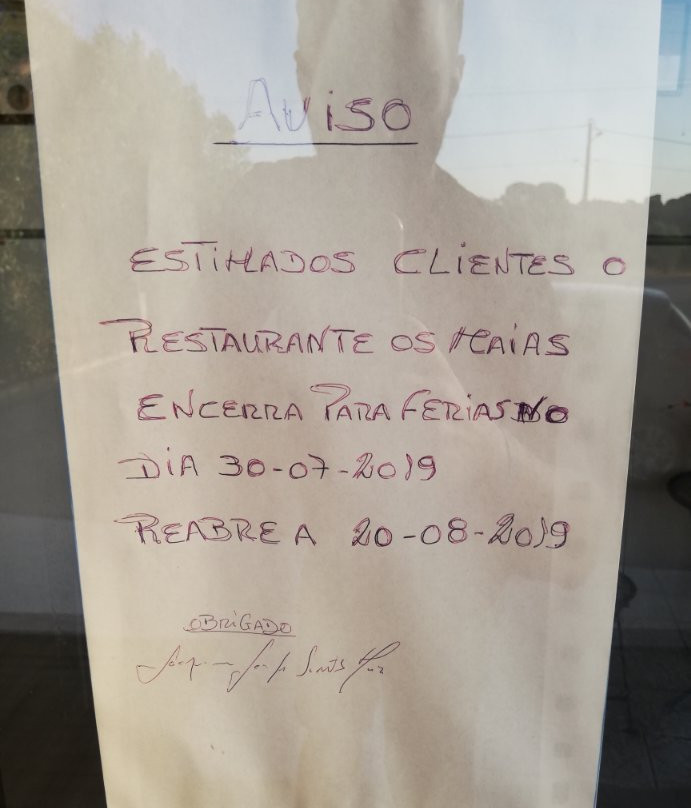 AViSO
ESTiMADOS CLiENTES O
RESTAURANTE OS MAiAS
ENCERRA PARA FERiAS NO
DiA 30-07-2019
REABRE A 20-08-2019
OBRiGADO